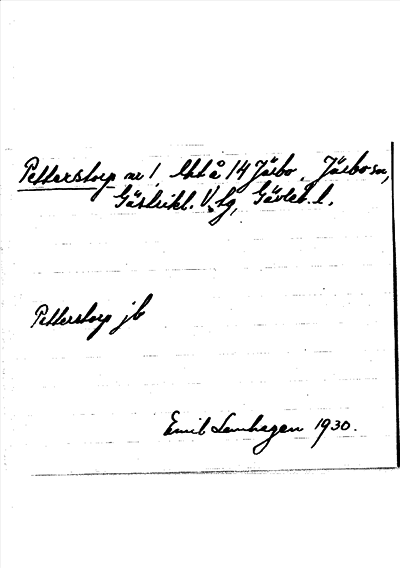 Petterstorp nr 1, Utb å 14 Järbo, Järbo sn,
Gästrikl. V. tg, Gävleb. l.
Petterstorp jb
Emil Lenhagen 1930.